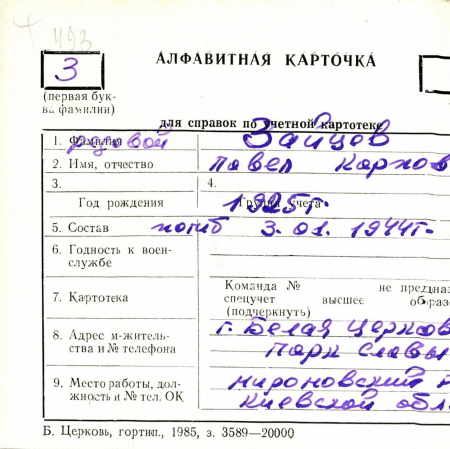 493
З
АЛФАВИТНАЯ КАРТОЧКА
(первая бук-
ва фамилии)
для справок по учетной картотеке
1. Фамилия рядовой Зайцов
2. Имя, отчество Павел Карпов
3. 4.
Год рождения 1925г. Группа учета
5. Состав погиб 3.01.1944г.
6. Годность к воен-
службе
7. Картотека
Команда № не предназ
спецучет высшее образ
(подчеркнуть)
8. Адрес м-житель-
ства и № телефона
г. Белая Церков
парк Славы
9. Место работы, дол-
жность и № тел. ОК
Мироновский р
Киевской обл.
Б. Церковь, гортип., 1985, з. 3589—20000